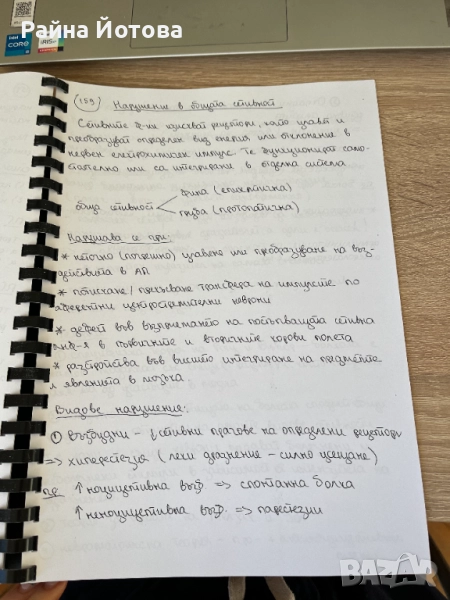 Райна Йотова
intel
CORE
i5
159 Нарушение в общата сетивност
Сетивните ф-ии изискват рецептори, които улавят и
преобразуват определен вид енергия или отклонение в
нервен електрохимичен импулс. Те функционират само-
стоятелно или са интегрирани в отделна система
фина (епикритична)
обща сетивност
груба (протопатична)
Нарушава се при:
* неточно (погрешно) улавяне или преобразуване на въз-
действията в АП
* потискане/прекъсване трансфера на импулсите по
аферентни центростремителни неврони
* дефект във възприемането на постъпващата сетивна
инф-я в първичните и вторичните корови полета
* разстройства във висшето интегриране на предметите
и явленията в мозъка
Видове нарушение:
① възбудни - ↓ сетивни прагове на определени рецептори
=> хиперестезия (леко дразнене - силно усещане)
пр ↑ ноцицептивна възб. => спонтанна болка
↑ неноцицептивна възб. => парестезии
Bazar